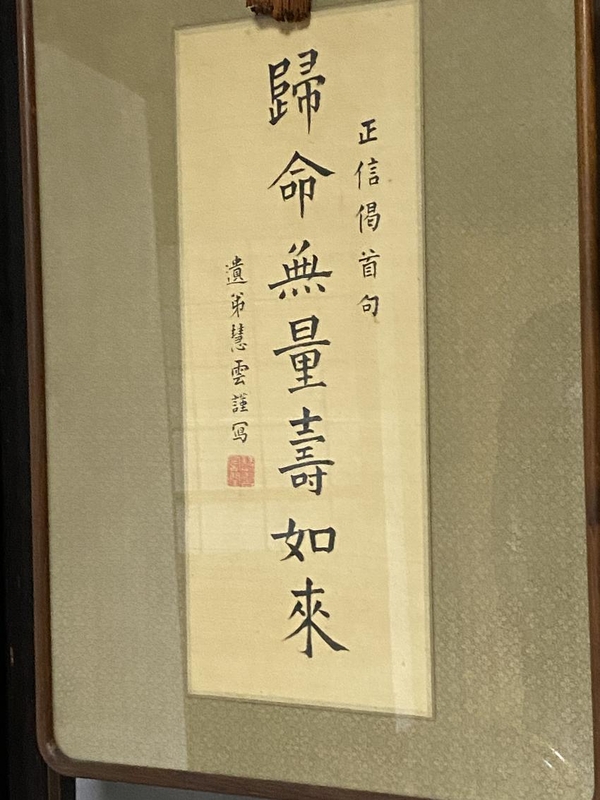 正信偈首句
歸命無量壽如來
遺弟慧雲謹写